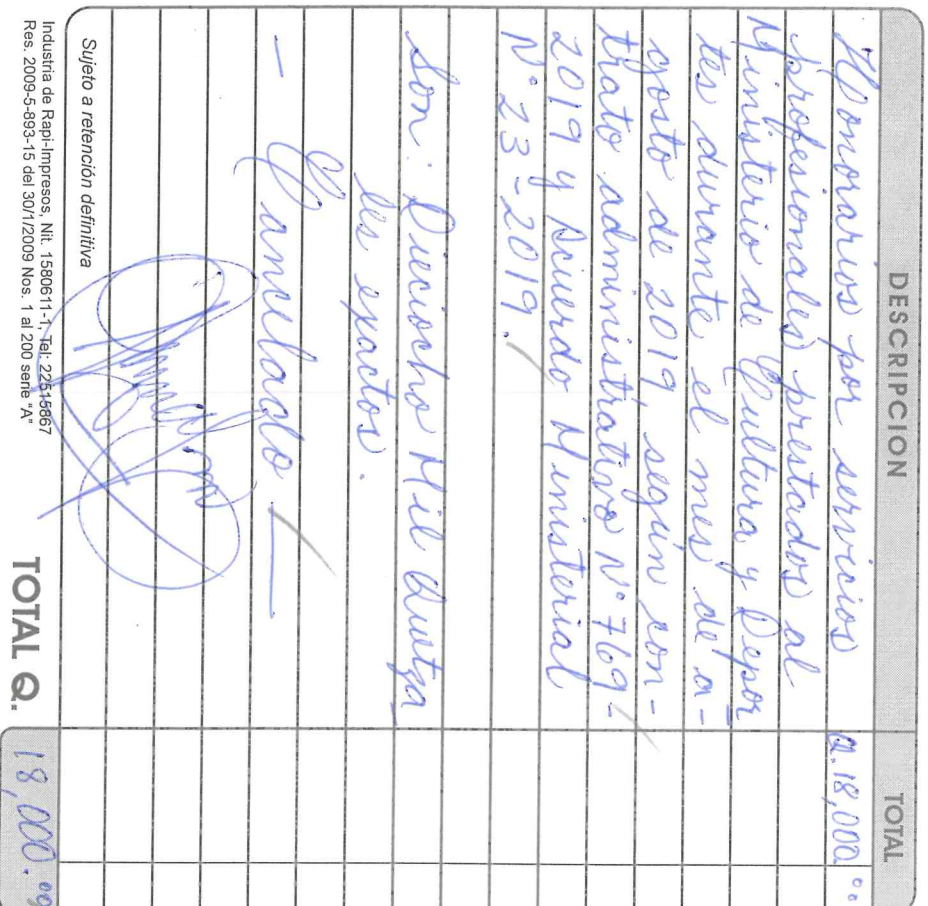 DESCRIPCION TOTAL
Honorarios por servicios Q. 18,000.00
profesionales prestados al
Ministerio de Cultura y Depor
tes durante el mes de a-
gosto de 2019, según con-
trato administrativo N° 769-
2019 y Acuerdo Ministerial
N° 23-2019.
Son: Dieciocho Mil Quetza
les exactos.
- Cancelado -
Sujeto a retención definitiva
Industria de Rapi-Impresos, Nit. 1580611-1, Tel: 22515867
Res. 2009-5-893-15 del 30/1/2009 Nos. 1 al 200 serie "A"
TOTAL Q. 18,000.00